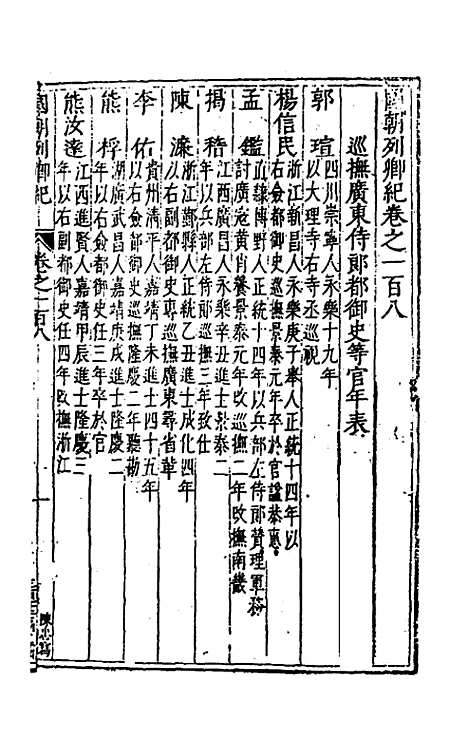 國朝列卿紀卷之一百八
巡撫廣東侍郎都御史等官年表
郭瑄 四川崇寧人永樂十九年
以大理寺右寺丞巡視
楊信民 浙江新昌人永樂庚子舉人正統十四年以
右僉都御史巡撫景泰元年卒於官謚恭惠
孟鑑 直隸博野人正統十四年以兵部左侍郎贊理軍務
討廣寇黄肖養景泰元年改巡撫二年改撫南畿
揭稽 江西人永樂辛丑進士景泰二
年以兵部左侍郎巡撫三年致仕
陳濂 浙江鄞縣人正統乙丑進士成化四年
以右副都御史專巡撫廣東尋省革
李佑 貴州清平人嘉靖丁未進士四十五年
以右僉都御史巡撫隆慶二年聽勘
熊桴 湖廣武昌人嘉靖庚戌進士隆慶二
年以右僉都御史任三年卒於官
熊汝達 江西進賢人嘉靖甲辰進士隆慶三
年以右副都御史任四年改撫浙江
國朝列卿紀
卷之一百八
一